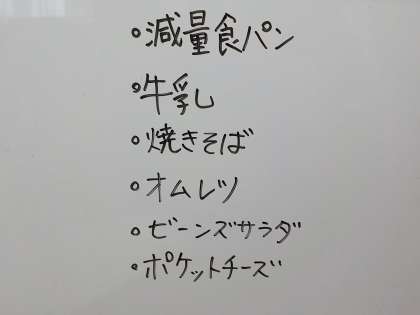 ・減量食パン
・牛乳
・焼きそば
・オムレツ
・ビーンズサラダ
・ポケットチーズ